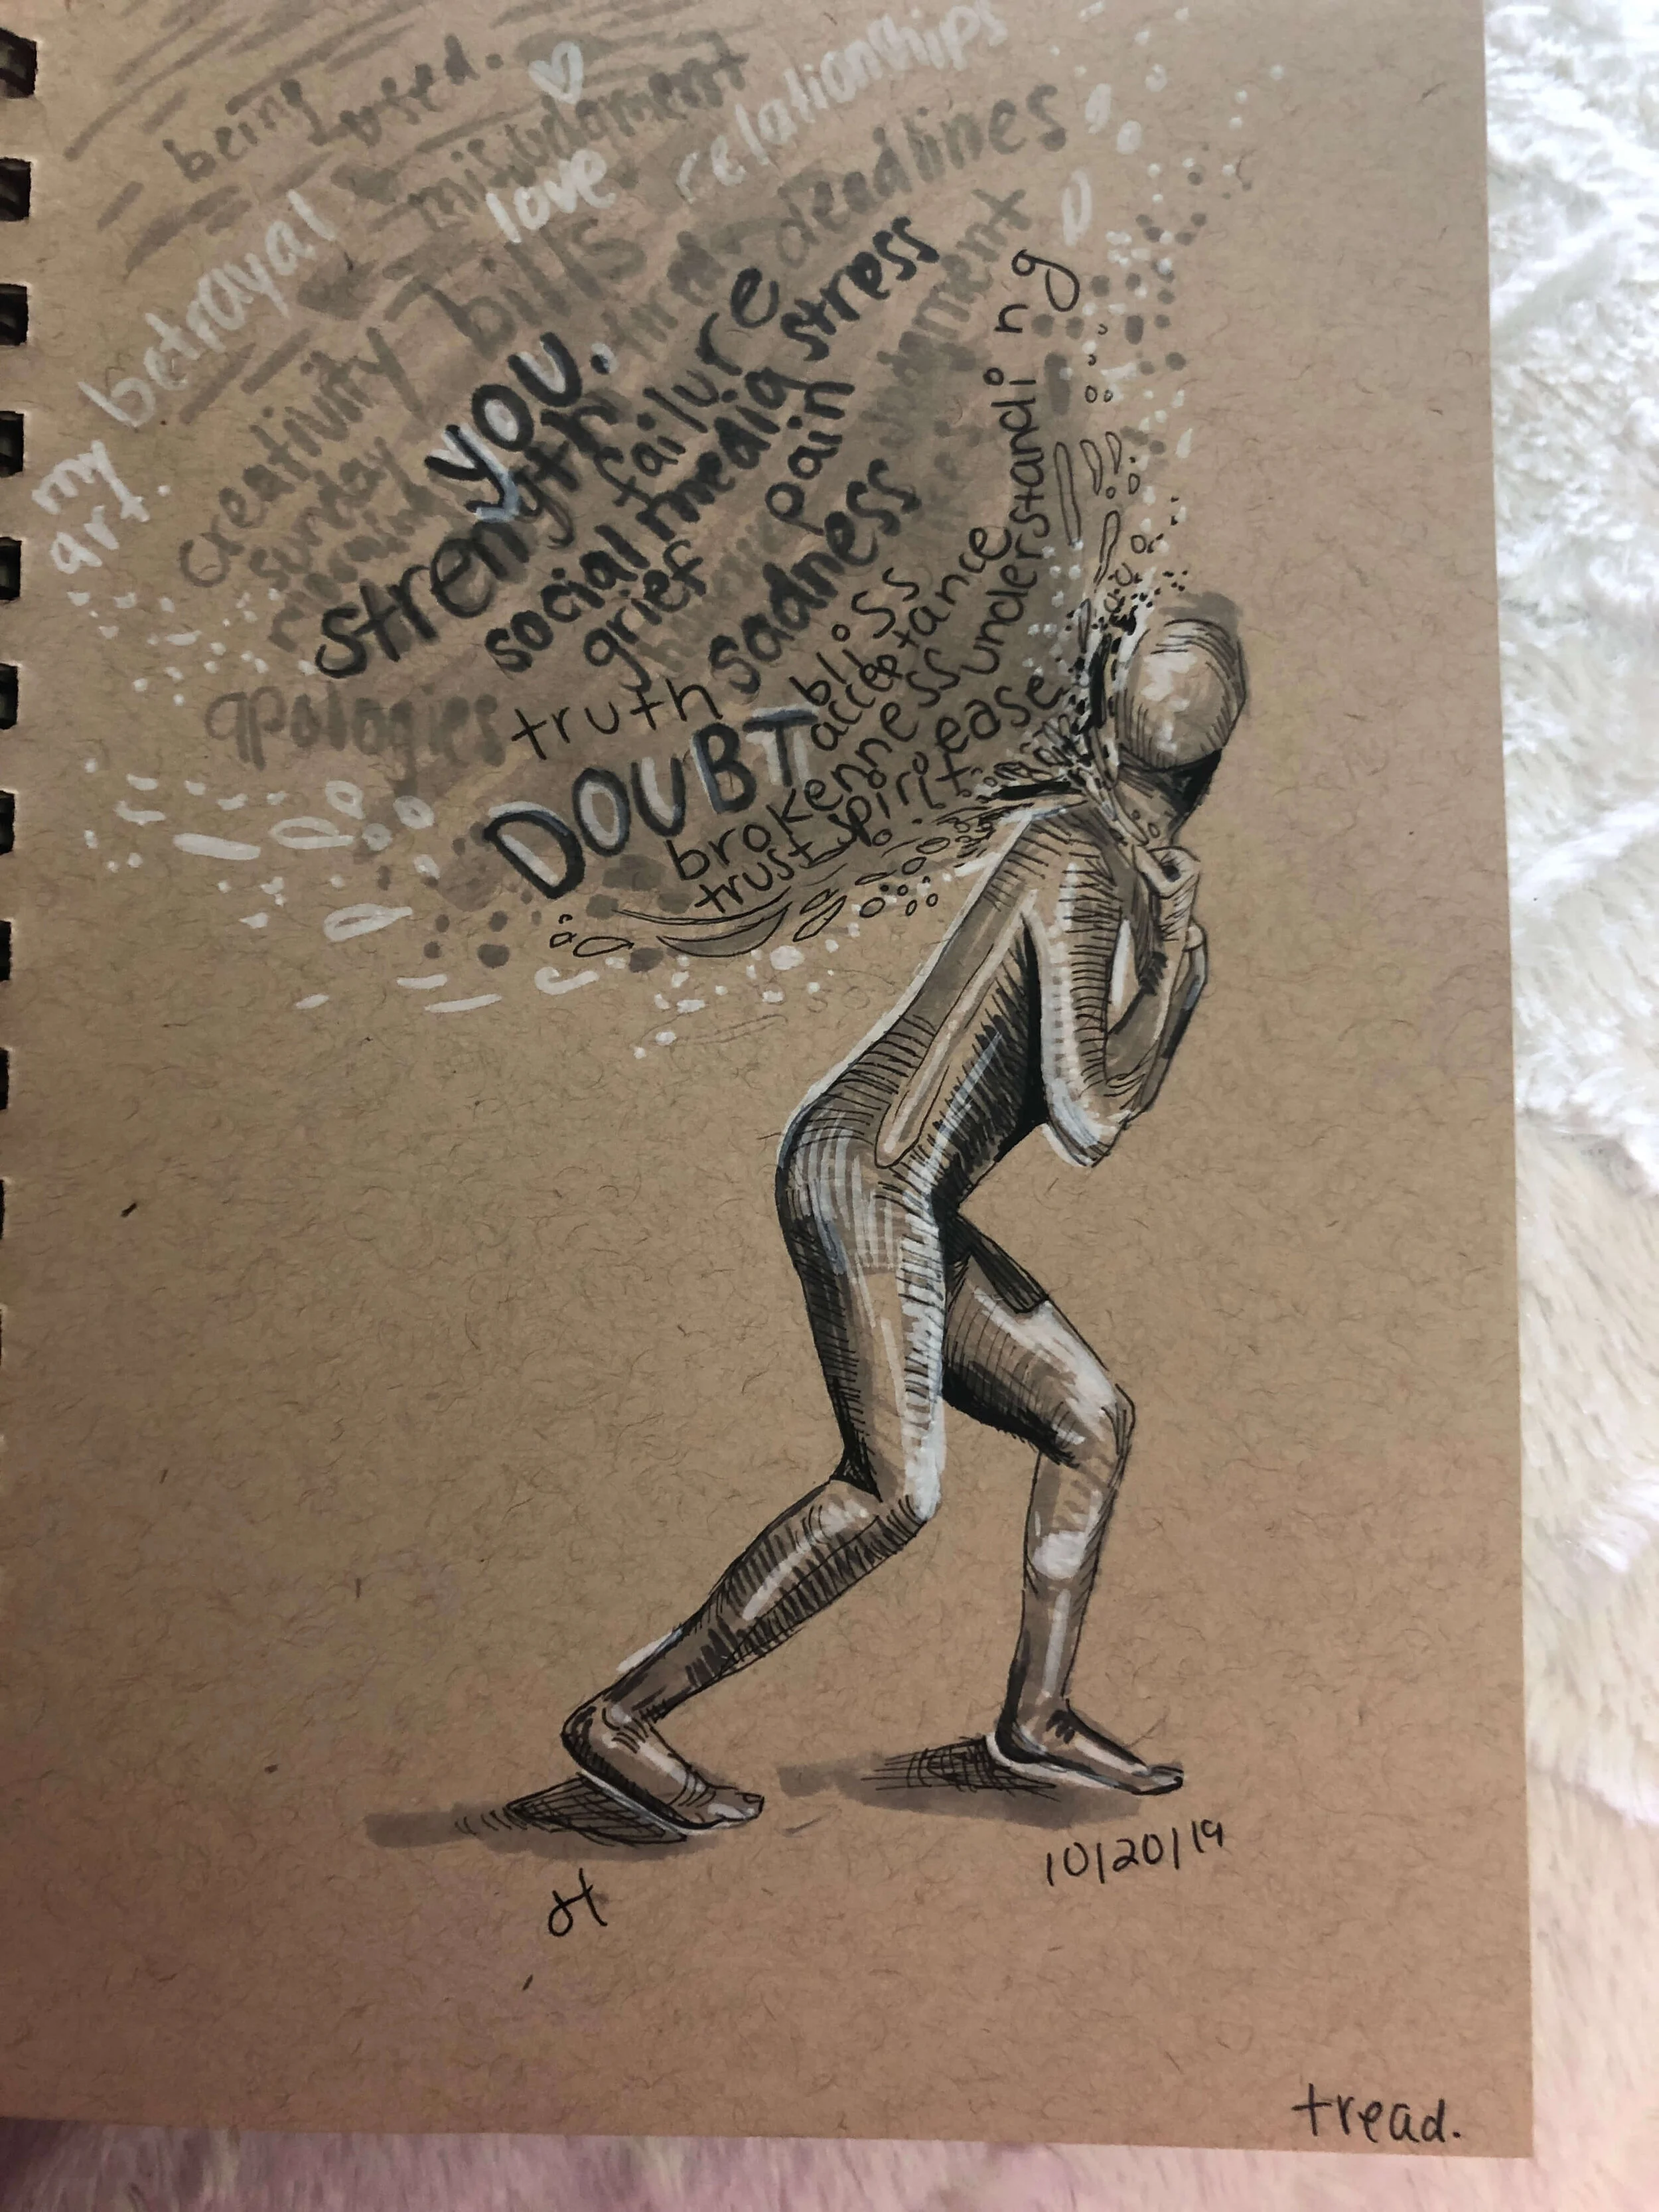 being used.
misjudgment
love
relationships
betrayal
bills
deadlines
my
art.
creativity
you.
failure
stress
sunday
strength
social media
pain
grief
understanding
sadness
apologies
truth
bliss
acceptance
DOUBT
brokenness
ease
trust
spirit
10/20/19
tread.